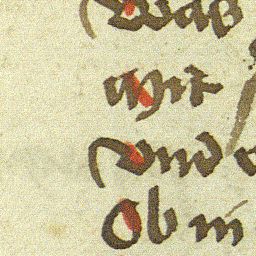 Was
mit
Vnd
Ob m